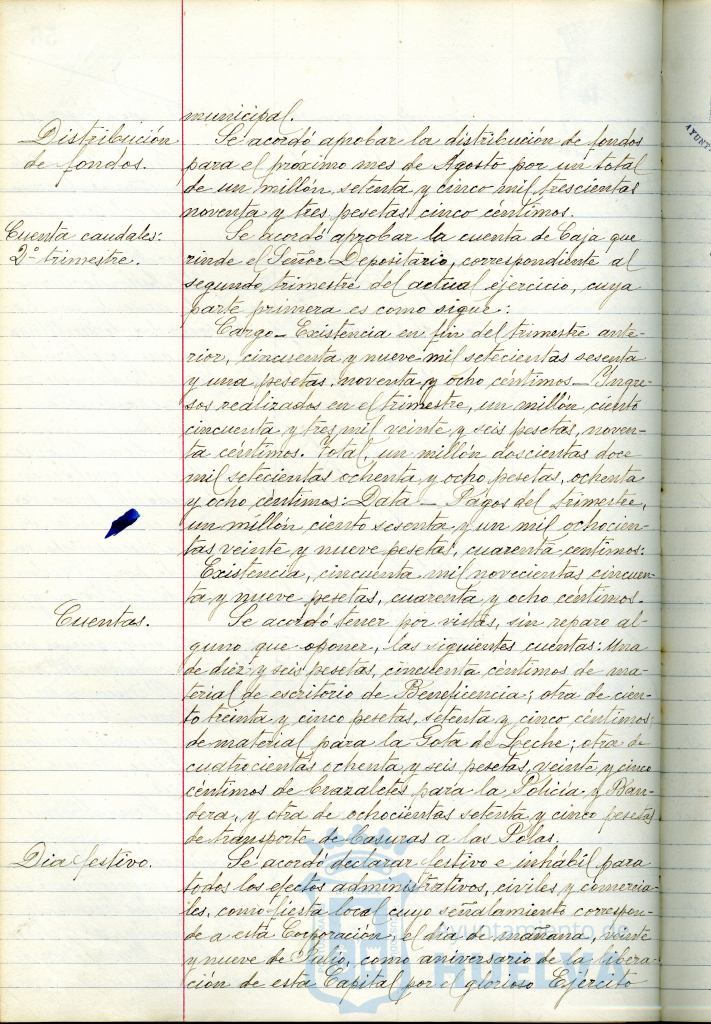 municipal.
Distribución
de fondos.
Se acordó aprobar la distribución de fondos
para el próximo mes de Agosto por un total
de un millón setenta y cinco mil trescientas
noventa y tres pesetas cinco céntimos.
Cuenta caudales:
2º trimestre.
Se acordó aprobar la cuenta de Caja que
rinde el Señor Depositario, correspondiente al
segundo trimestre del actual ejercicio, cuya
parte primera es como sigue:
Cargo_ Existencia en fin del trimestre ante-
rior, cincuenta y nueve mil setecientas sesenta
y una pesetas, noventa y ocho céntimos_ Ingre-
sos realizados en el trimestre, un millón ciento
cincuenta y tres mil veinte y seis pesetas, noven-
ta céntimos. Total, un millón doscientas doce
mil setecientas ochenta y ocho pesetas, ochenta
y ocho céntimos: Data_ Pagos del trimestre,
un millón ciento sesenta y un mil ochocien-
tas veinte y nueve pesetas, cuarenta centimos:
Existencia, cincuenta mil novecientas cincuen-
ta y nueve pesetas, cuarenta y ocho céntimos.
Cuentas.
Se acordó tener por vistas, sin reparo al-
guno que oponer, las siguientes cuentas: Una
de diez y seis pesetas, cincuenta céntimos de ma-
terial de escritorio de Beneficencia; otra de cien-
to treinta y cinco pesetas, setenta y cinco céntimos
de material para la Gota de Leche; otra de
cuatrocientas ochenta y seis pesetas, veinte y cinco
céntimos de brazaletes para la Policia y Ban-
dera, y otra de ochocientas setenta y cinco pesetas
de transporte de basuras a las Polas.
Dia festivo.
Se acordó declarar festivo e inhábil para
todos los efectos administrativos, civiles y comercia-
les, como fiesta local cuyo señalamiento correspon-
de a esta Corporación, el dia de mañana, veinte
y nueve de Julio, como aniversario de la libera-
ción de esta Capital por el glorioso Ejército
Ayuntamiento de
HUELVA
AYUNT